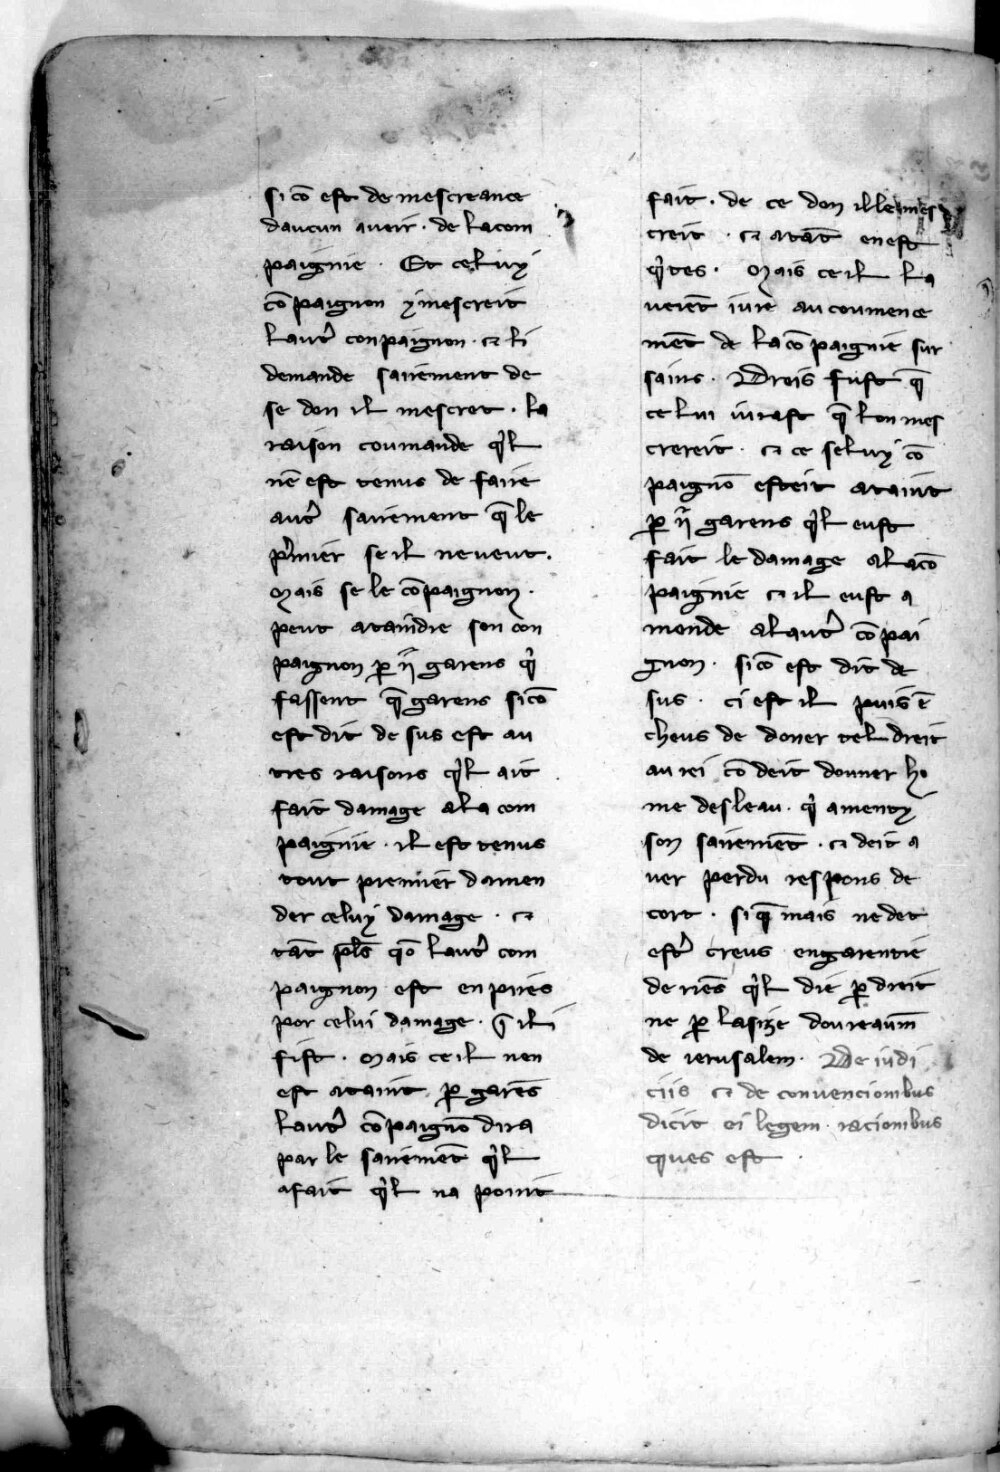 si cō est de mescreance
daucun aueir · de la com
paignie · Et celuy
cōpaignon y mescreit
lautr̉ conpaignon · ⁊ li
demande sairement de
se don il mescret · la
raison coumande q̉l
nē est tenus de faire
autr̉ sairement q̄ le
p̉mier se il ne veut ·
Mais se le cōpaignon ·
peut ataindre son con
paignon ꝑ ıȷ̄ garens q̉
fassent q̄ garens si cō
est dit de sus est au
tres raisons q̉l ait
fait damage a la com
paignie · il est tenus
tout premier damen
der celuy damage · ⁊
tāt pl̄s qō lautr̉ com
paignon est enpires
por celui damage · q̄ il i
fist · Mais ce il nen
est ataint ꝑ garēs
lautr̉ cōpaignō dira
par le sairemēt q̉l
a fait q̉l na point
fait · de ce don il le mes
creit · ⁊ atāt en est
q̉tes · Mais ce il la
ueiēt iure au coumence
mēt de la cōpaignie sur
sains · Drois fust q̄
celui iurast q̄ lon mes
crereit · ⁊ ce seluy cō
paignō esteit ataint
ꝑ ıȷ̄ garens q̉l eust
fait le damage a la cō
paignie ⁊ il eust a
mende a lautr̉ cōpai
gnon · si cō est dit de
sus · ci est il puis ē
cheus de doner tel dreit
au rei cō deit donner ho
me desleau · q̉ amenty
son sairemēt · ⁊ deit a
uer perdu respons de
cort · si q̄ mais ne det
estr̉ creus en garentie
de riēs q̉l die ꝑ dreit
ne ꝑ lasize dou reaum̄
de ierusalem · De iudi
ciis ⁊ de conuencionibus
dicit ei legem · racionibus
ques est ·